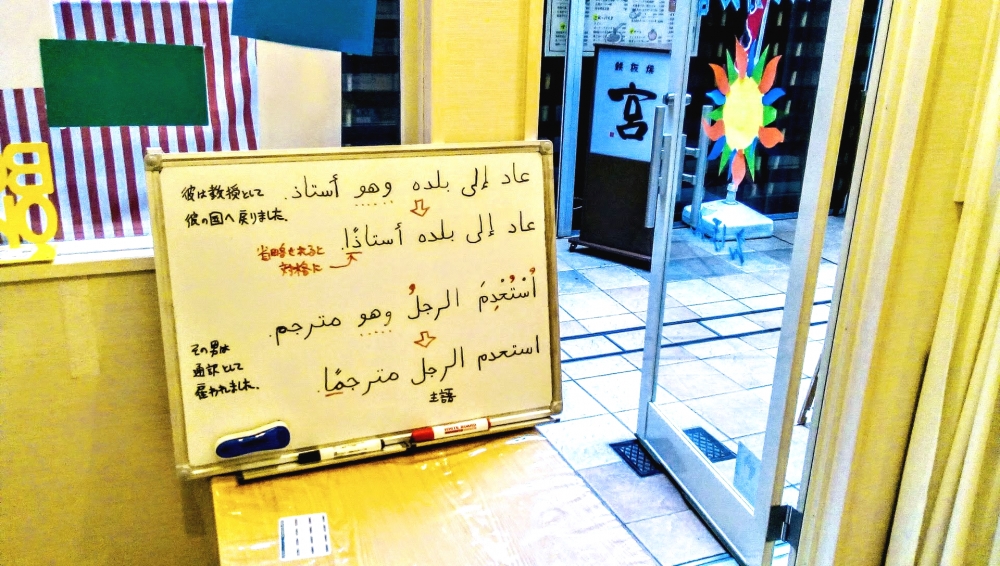 عاد إلى بلده وهو أستاذ.
彼は教授として
彼の国へ戻りました。
عاد إلى بلده أستاذًا.
省略されると
対格に
اُسْتُخْدِمَ الرجلُ وهو مترجم.
استخدم الرجل مترجمًا.
主語
その男は
通訳として
雇われました。
宮